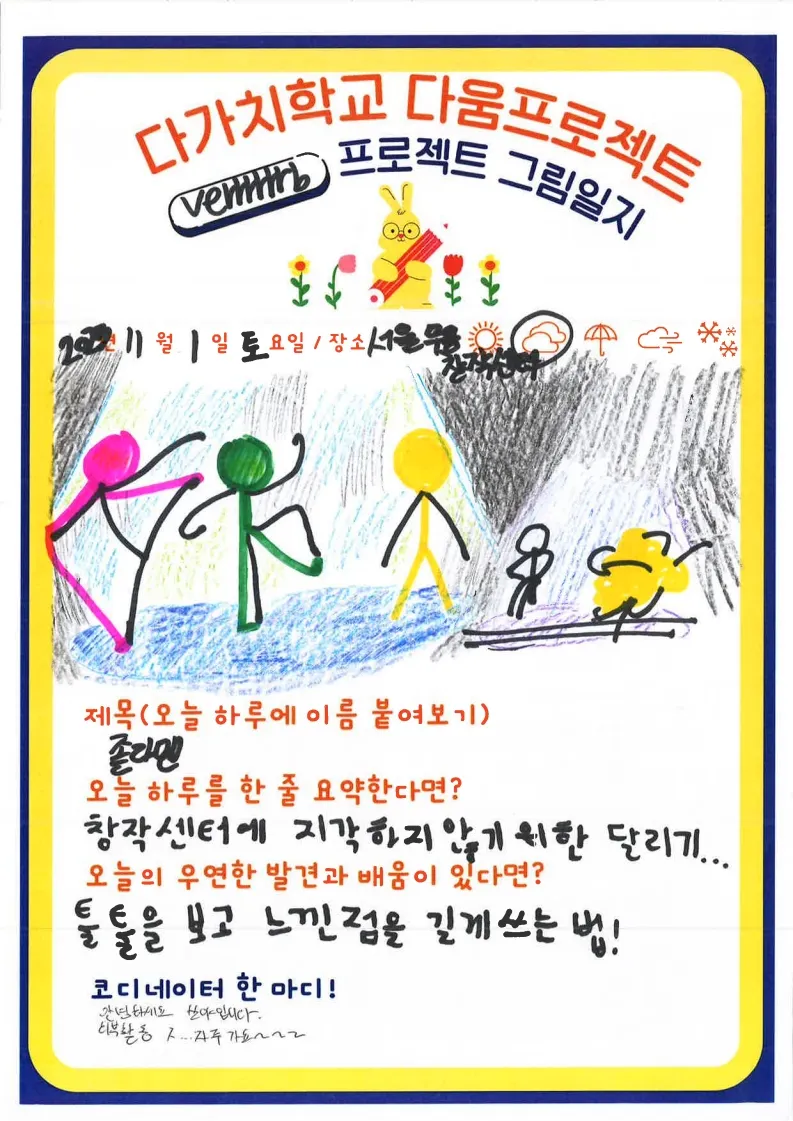 다가치학교 다움프로젝트
verrrrrb 프로젝트 그림일지
11월 1일 토요일 / 장소 서울무용
창작센터
제목(오늘 하루에 이름 붙여보기)
졸다멘
오늘 하루를 한 줄 요약한다면?
창작센터에 지각하지 않기 위한 달리기...
오늘의 우연한 발견과 배움이 있다면?
툴툴을 보고 느낀점을 길게쓰는 법!
코디네이터 한 마디!
안녕하세요 쏘야입니다.
외부활동 ㅈ...자주 가요~~~